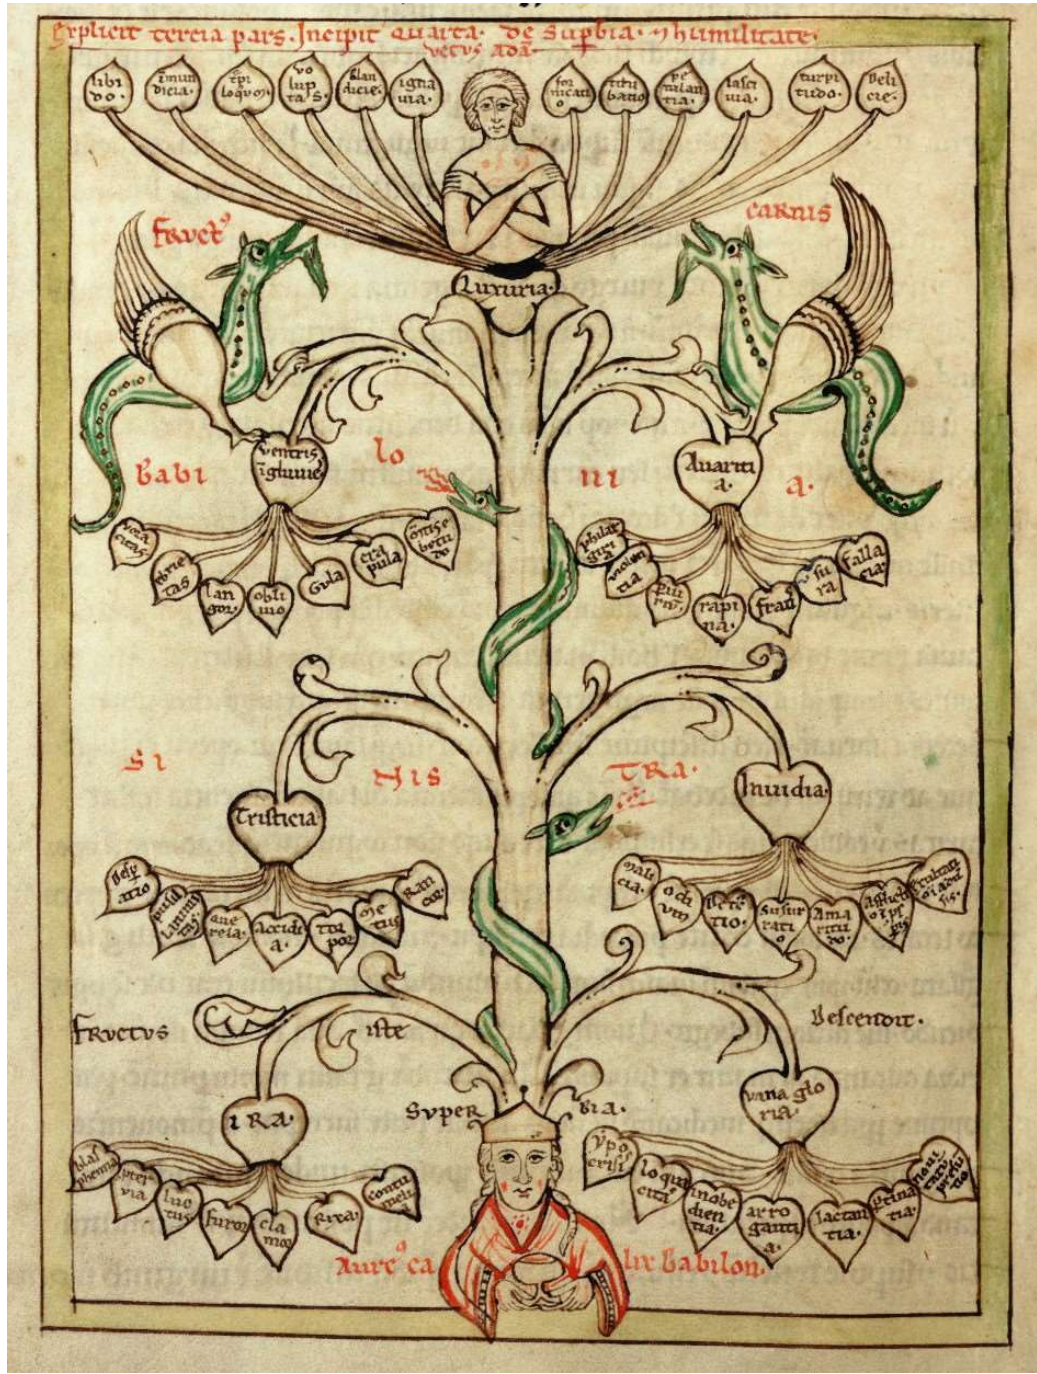 Explicit tercia pars. Incipit Quarta. de Supbia. ⁊ humilitate.
vetus adā.
libi
do.
īmun
dicia.
tpi
loquiū.
vo
lup
tas.
blan
dicie.
igna
uia.
for
nicati
o
titu
batio
pe
tulan
tia.
lasci
uia.
turpi
tudo.
Deli
cie.
fruct⁹
carnis
Luxuria.
Babi
lo
ni
a.
ventris
īgluuie
Auariti
a.
vora
citas
ebrie
tas
lan
gor.
obli
uio
Gula
cra
pula
philar
giri
a
violen
tia
rapi
na.
frau
fu
ra
falla
cia.
si
nis
tra.
Tristicia
Inuidia.
Desp
atio
pusil
lanimi
tas
Accidi
a.
Tor
por
Metus
Ran
cor.
Mali
cia.
odi
um
Detc
tio.
Susur
ratio
Ama
ritu
do.
fructus
iste
Descendit.
IRA.
Super
bia.
vana glo
ria.
blas
phemia
pter
via
luc
tus
furor
cla
mor
Rixa.
contu
melia
ypo
crisi
loqua
citas
inobe
dien
tia.
arro
ganti
a.
Iactan
tia.
ptina
tia.
noui
tatū
presū
tio
Aure⁹ ca
lix Babilon.